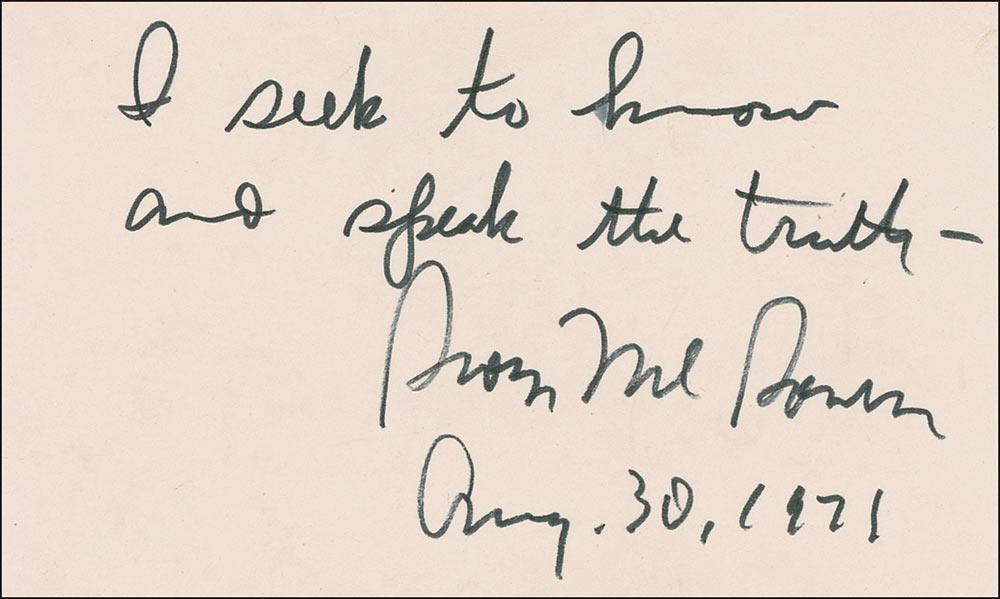 I seek to know
and speak the truth —
Aug. 30, 1971